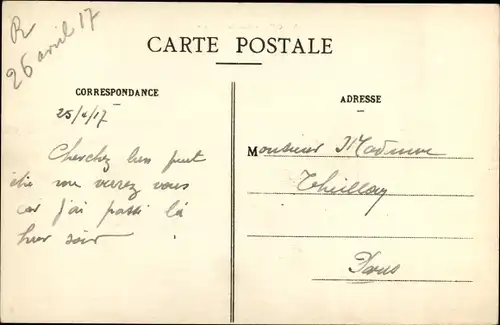 R
26 avril 17
CARTE POSTALE
CORRESPONDANCE
ADRESSE
25/4/17
Cherchez bien peut
être vous verrez vous
car j'ai passé là
hier soir
Monsieur Madame
Theillay
Paris